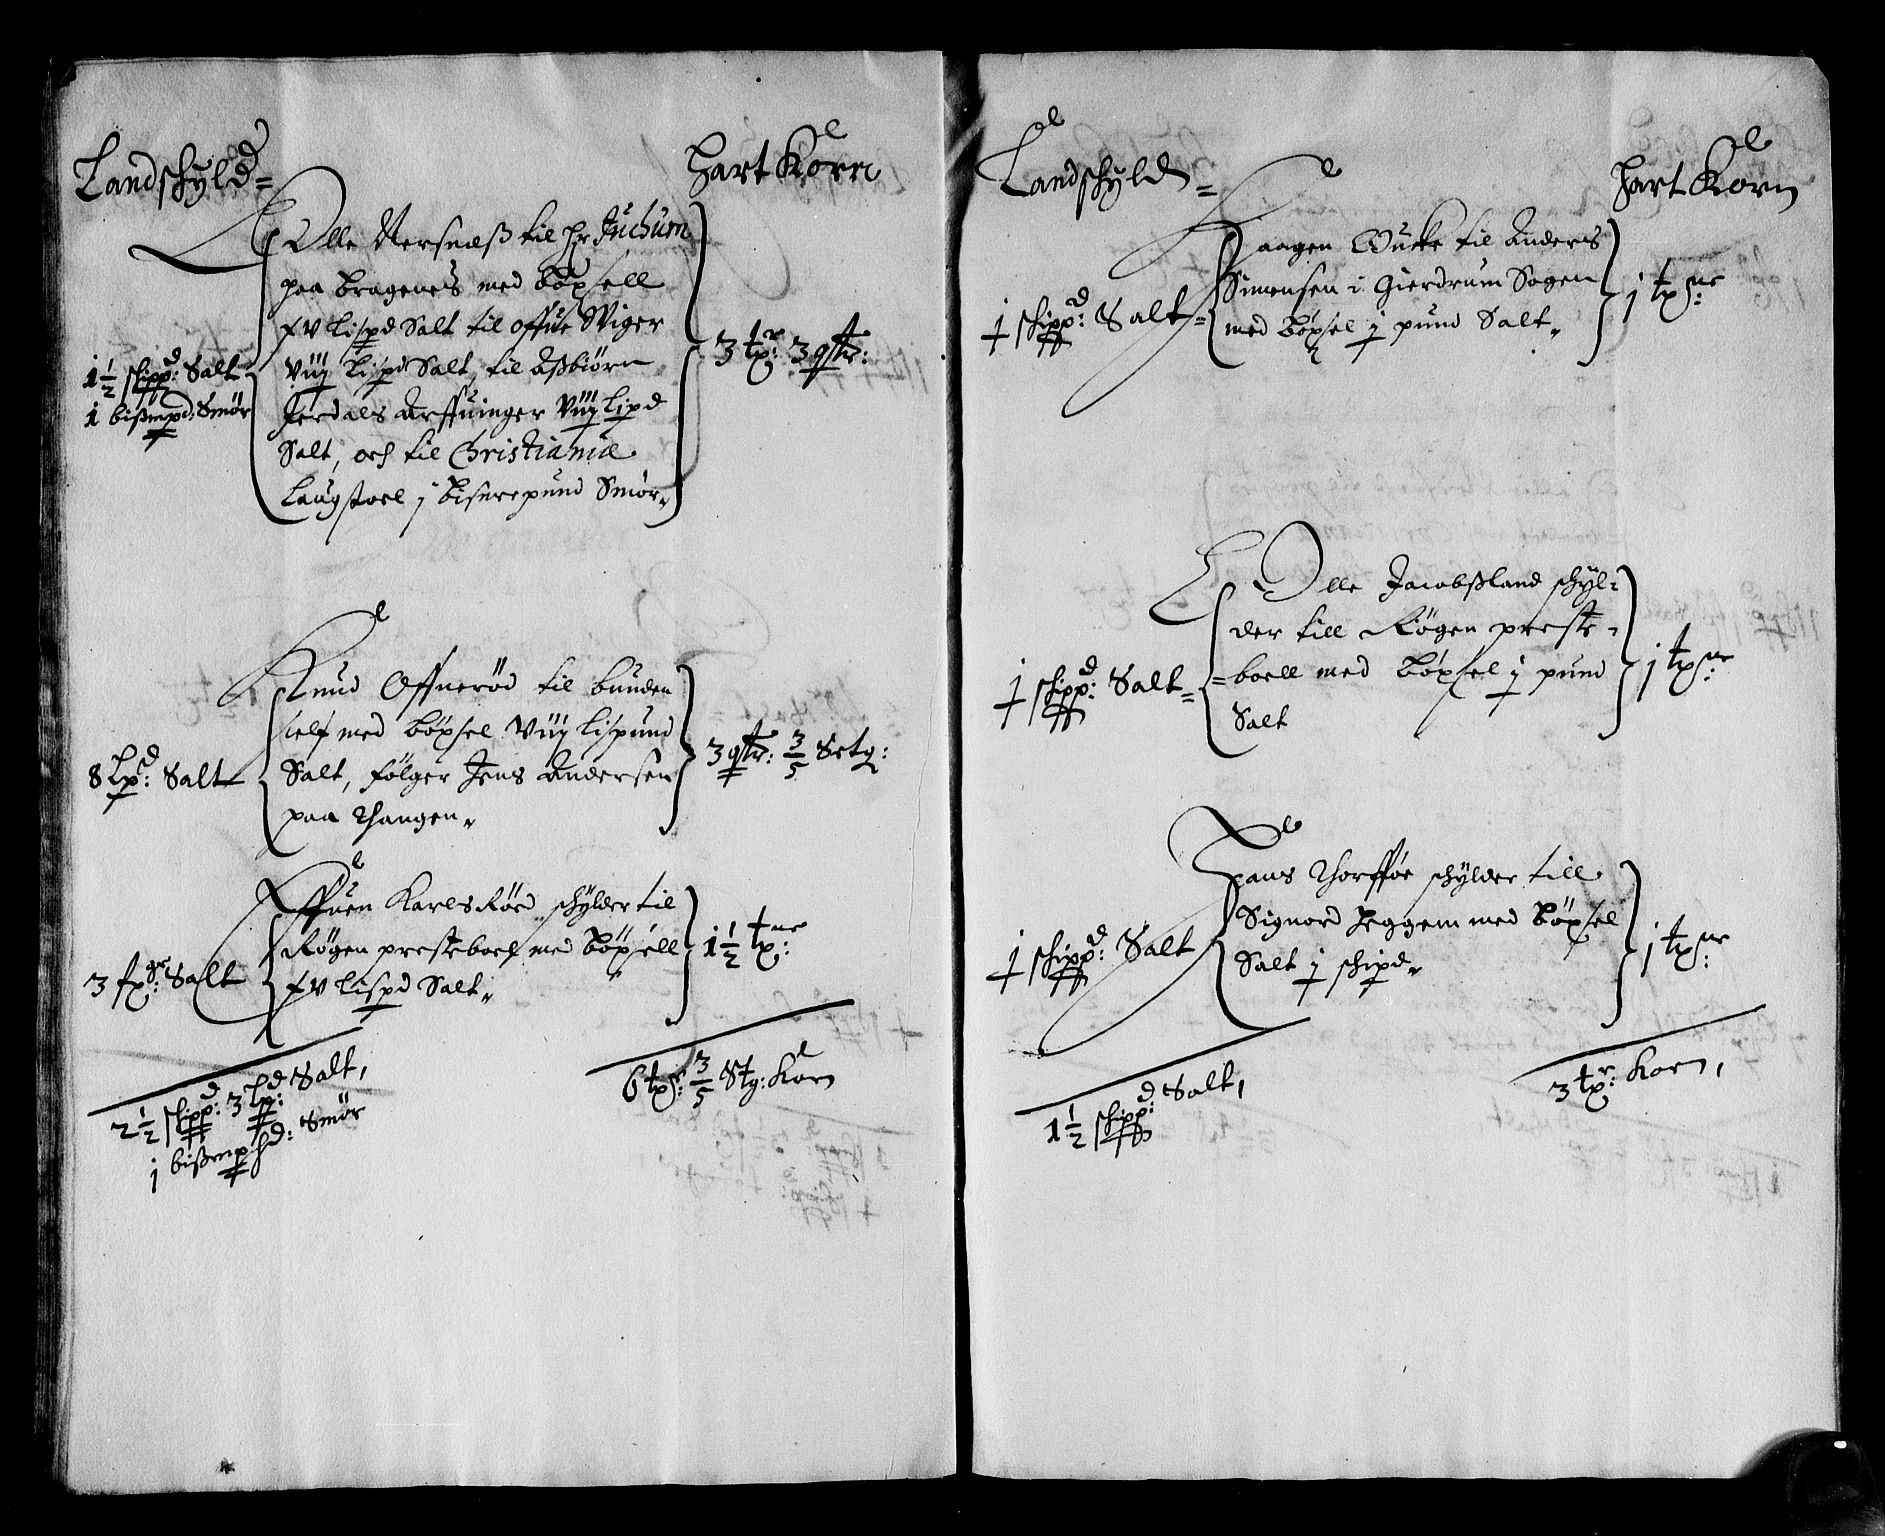 Landschyld=
Hart Korn
Olle Nersneß til Hr Juchum
paa Bragenes med böxsell
xv Lispd Salt til Offue Wiger
viij Lispd Salt, til Aßbiörn
Jerdals Arffuinger viij Lispd
Salt, och til Christiania
Laugstoel j bismerpund Smör„
1½ skipp: Salt
1 bißmpd: Smör
3 tr: 3 qtr:
Knud Offneröd til bunden
sielf med böxsel viij Lispund
Salt, fölger Jens Andersen
paa Thangen„
8 Lpd: Salt
3 qtr: 3/5 Setg:
Effuen Karlsröd schylder til
Rögen presteboel med böxsell
xv Lispd Salt„
3 fgr: Salt
1½ tne:
2½ skippd: 3 Lpd: Salt,
j bißmphd: Smör
6 tr: 3/5 Stg: Korn
Landschyld=
Hart Korn
Haagen Gucke til Anders
Simensen i Gierdrum Sogen
med böxsel ½ pund Salt„
½ skippd: Salt=
1 tne:
Olle Jacobßland schyl=
der till Rögen preste=
=boell med böxsel ½ pund
Salt
½ skippd: Salt=
1 tne:
Hans Thorfföe schylder till
Signord Heggem med böxsel
Salt ½ schipd„
½ skippd: Salt
1 tne:
1½ skippd: Salt,
3 tr: Korn,